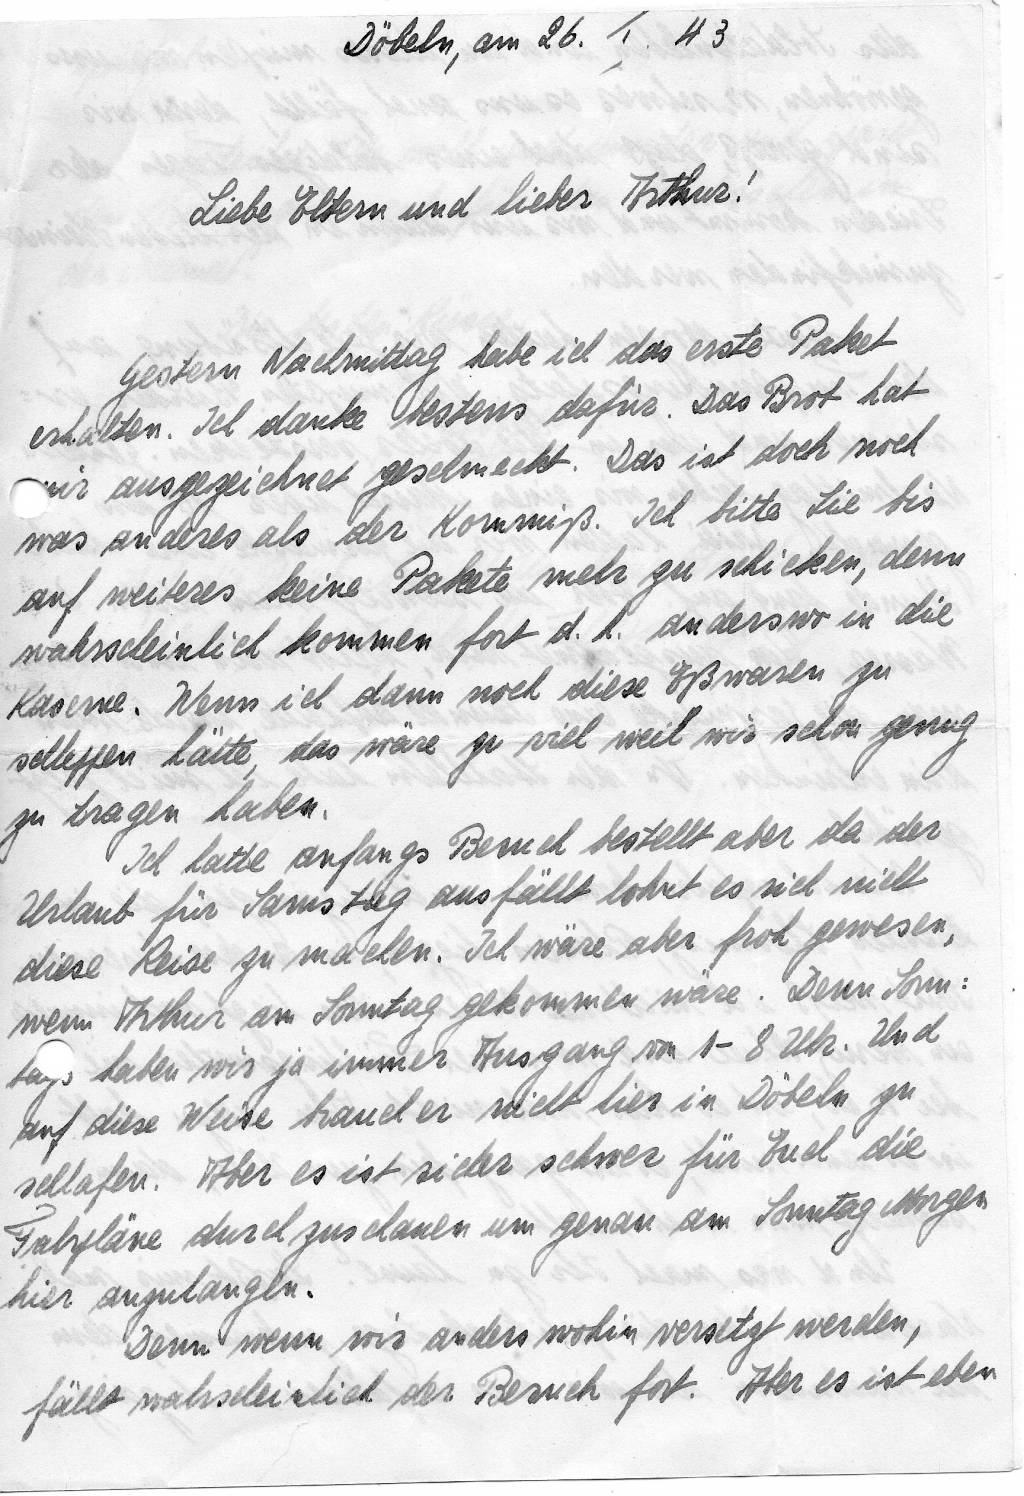 Döbeln, am 26. I. 43
Liebe Eltern und lieber Arthur!
Gestern Nachmittag habe ich das erste Paket
erhalten. Ich danke bestens dafür. Das Brot hat
mir ausgezeichnet geschmeckt. Das ist doch noch
was anderes als der Kommiß. Ich bitte Sie bis
auf weiteres keine Pakete mehr zu schicken, denn
wahrscheinlich kommen fort d. h. anderswo in die
Kaserne. Wenn ich dann noch diese Eßwaren zu
schleppen hätte, das wäre zu viel weil wir schon genug
zu tragen haben.
Ich hatte anfangs Besuch bestellt aber da der
Urlaub für Samstag ausfällt lohnt es sich nicht
diese Reise zu machen. Ich wäre aber froh gewesen,
wenn Arthur am Sonntag gekommen wäre. Denn Sonn:
tags haben wir ja immer Ausgang von 1 - 8 Uhr. Und
auf diese Weise braucht er nicht hier in Döbeln zu
schlafen. Aber es ist sicher schwer für Euch die
Fahrpläne durchzuschauen um genau am Sonntag Morgen
hier anzulangen.
Denn wenn wir anders wohin versetzt werden,
fällt wahrscheinlich der Besuch fort. Aber es ist eben